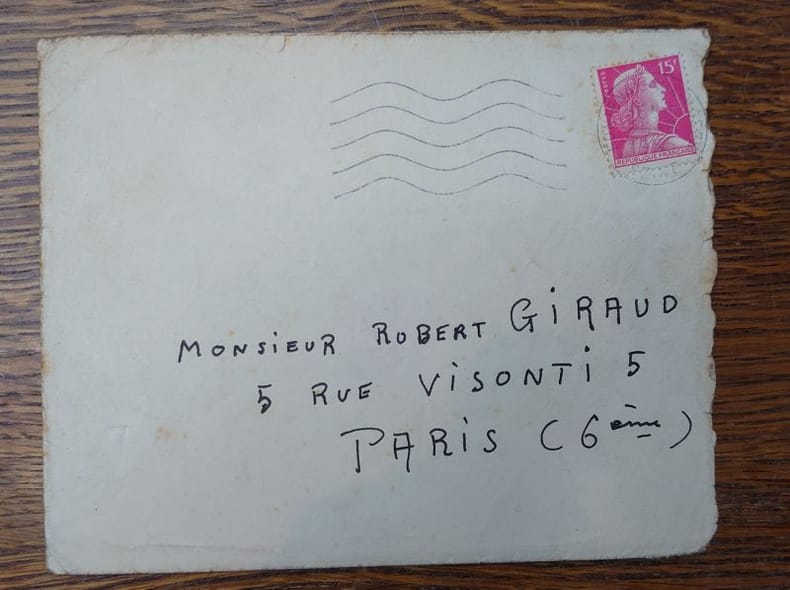 POSTES
15F
REPUBLIQUE FRANCAISE
MONSiEUR ROBERT GiRAUD
5 RUE ViSONTi 5
PARiS (6ème)